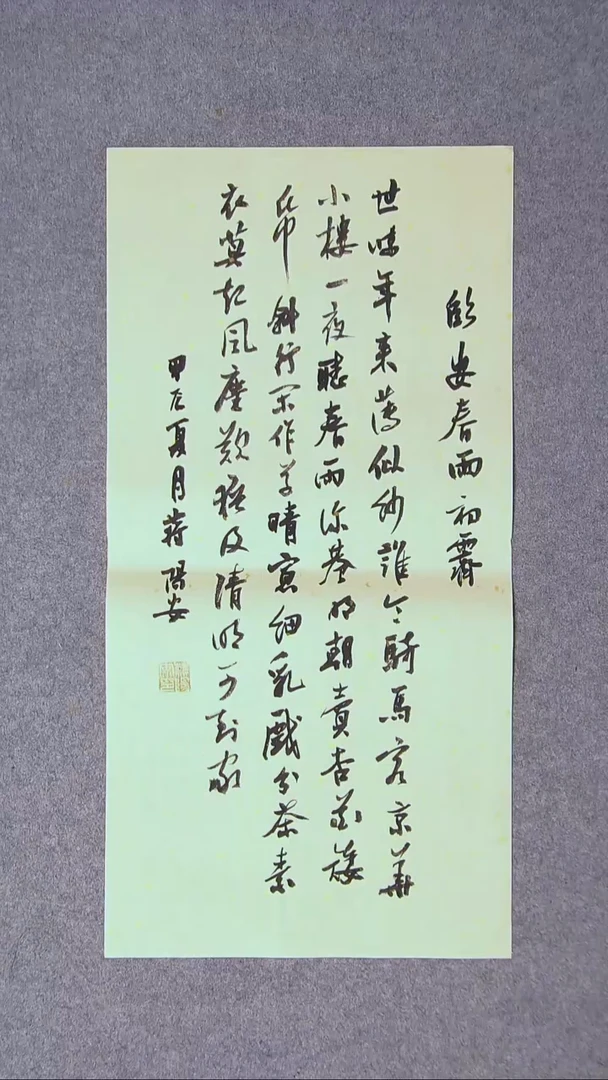 臨安春雨初霽
世味年來薄似紗誰令騎馬客京華
小樓一夜聽春雨深巷明朝賣杏花矮
帋斜行閑作草晴窓細乳戲分茶素
衣莫起風塵歎猶及清明可到家
甲辰夏月蒋陽安